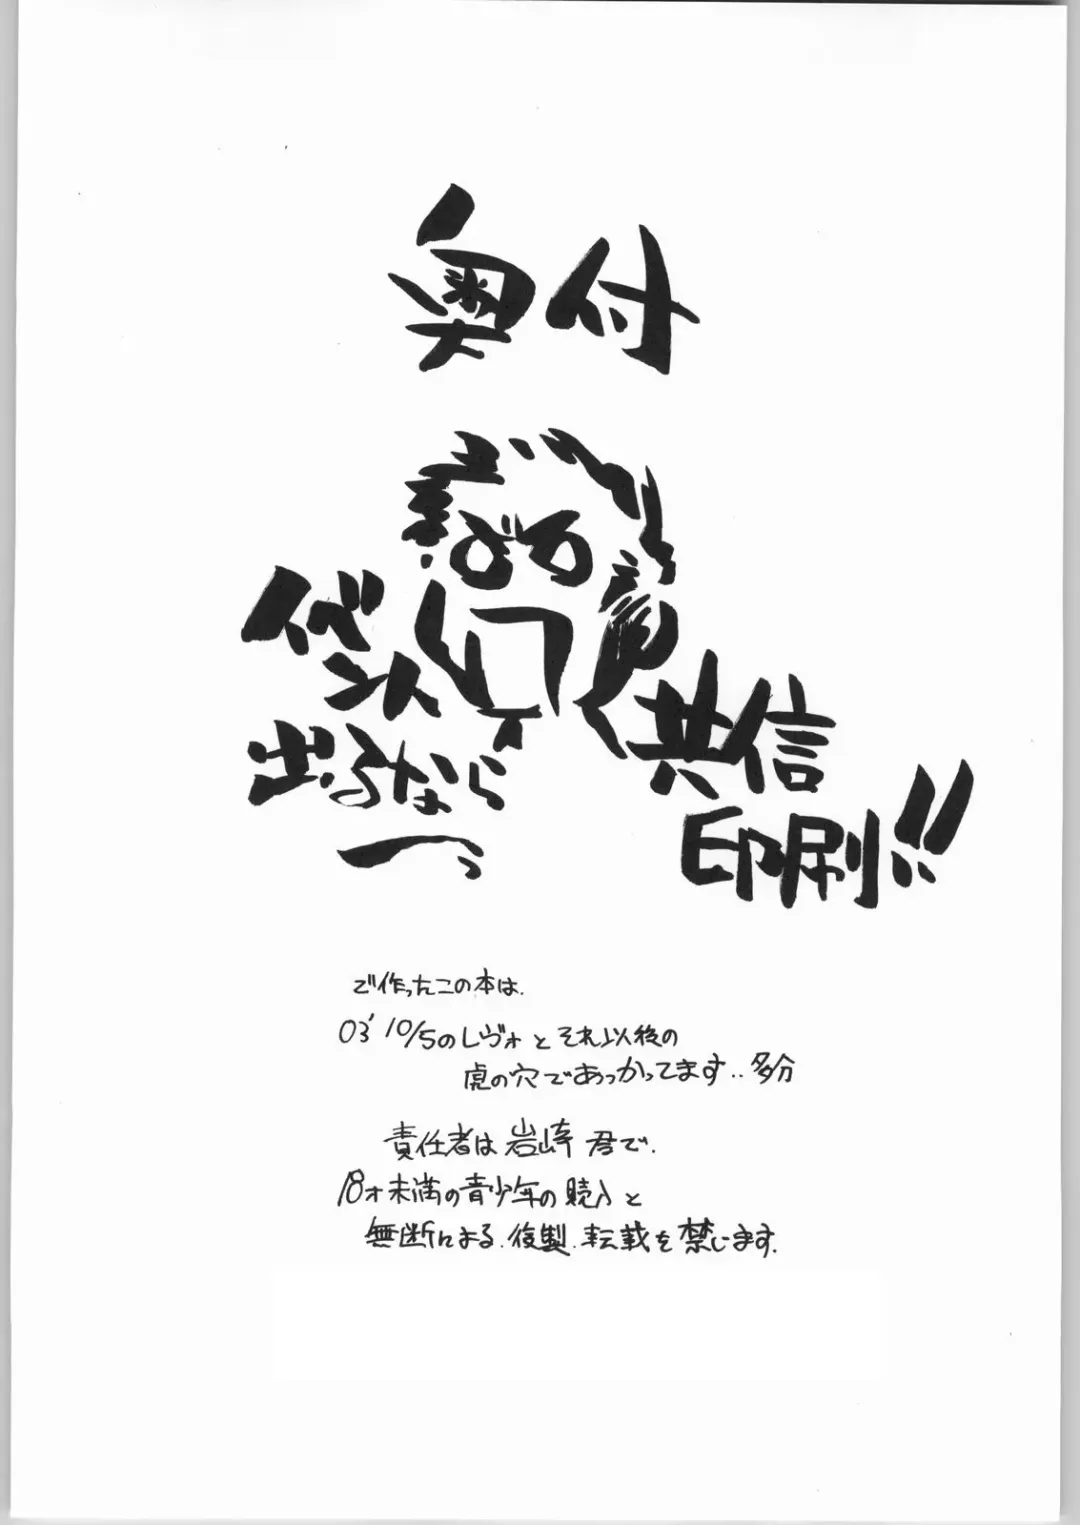 奥付
イベ
ント
出るなら
ーっ
共信
印刷!!
で作ったこの本は.
03' 10/5のレヴォとそれ以後の
虎の穴であつかってます..多分
責任者は岩崎君で.
18才未満の青少年の購入と
無断による.複製.転載を禁じます.